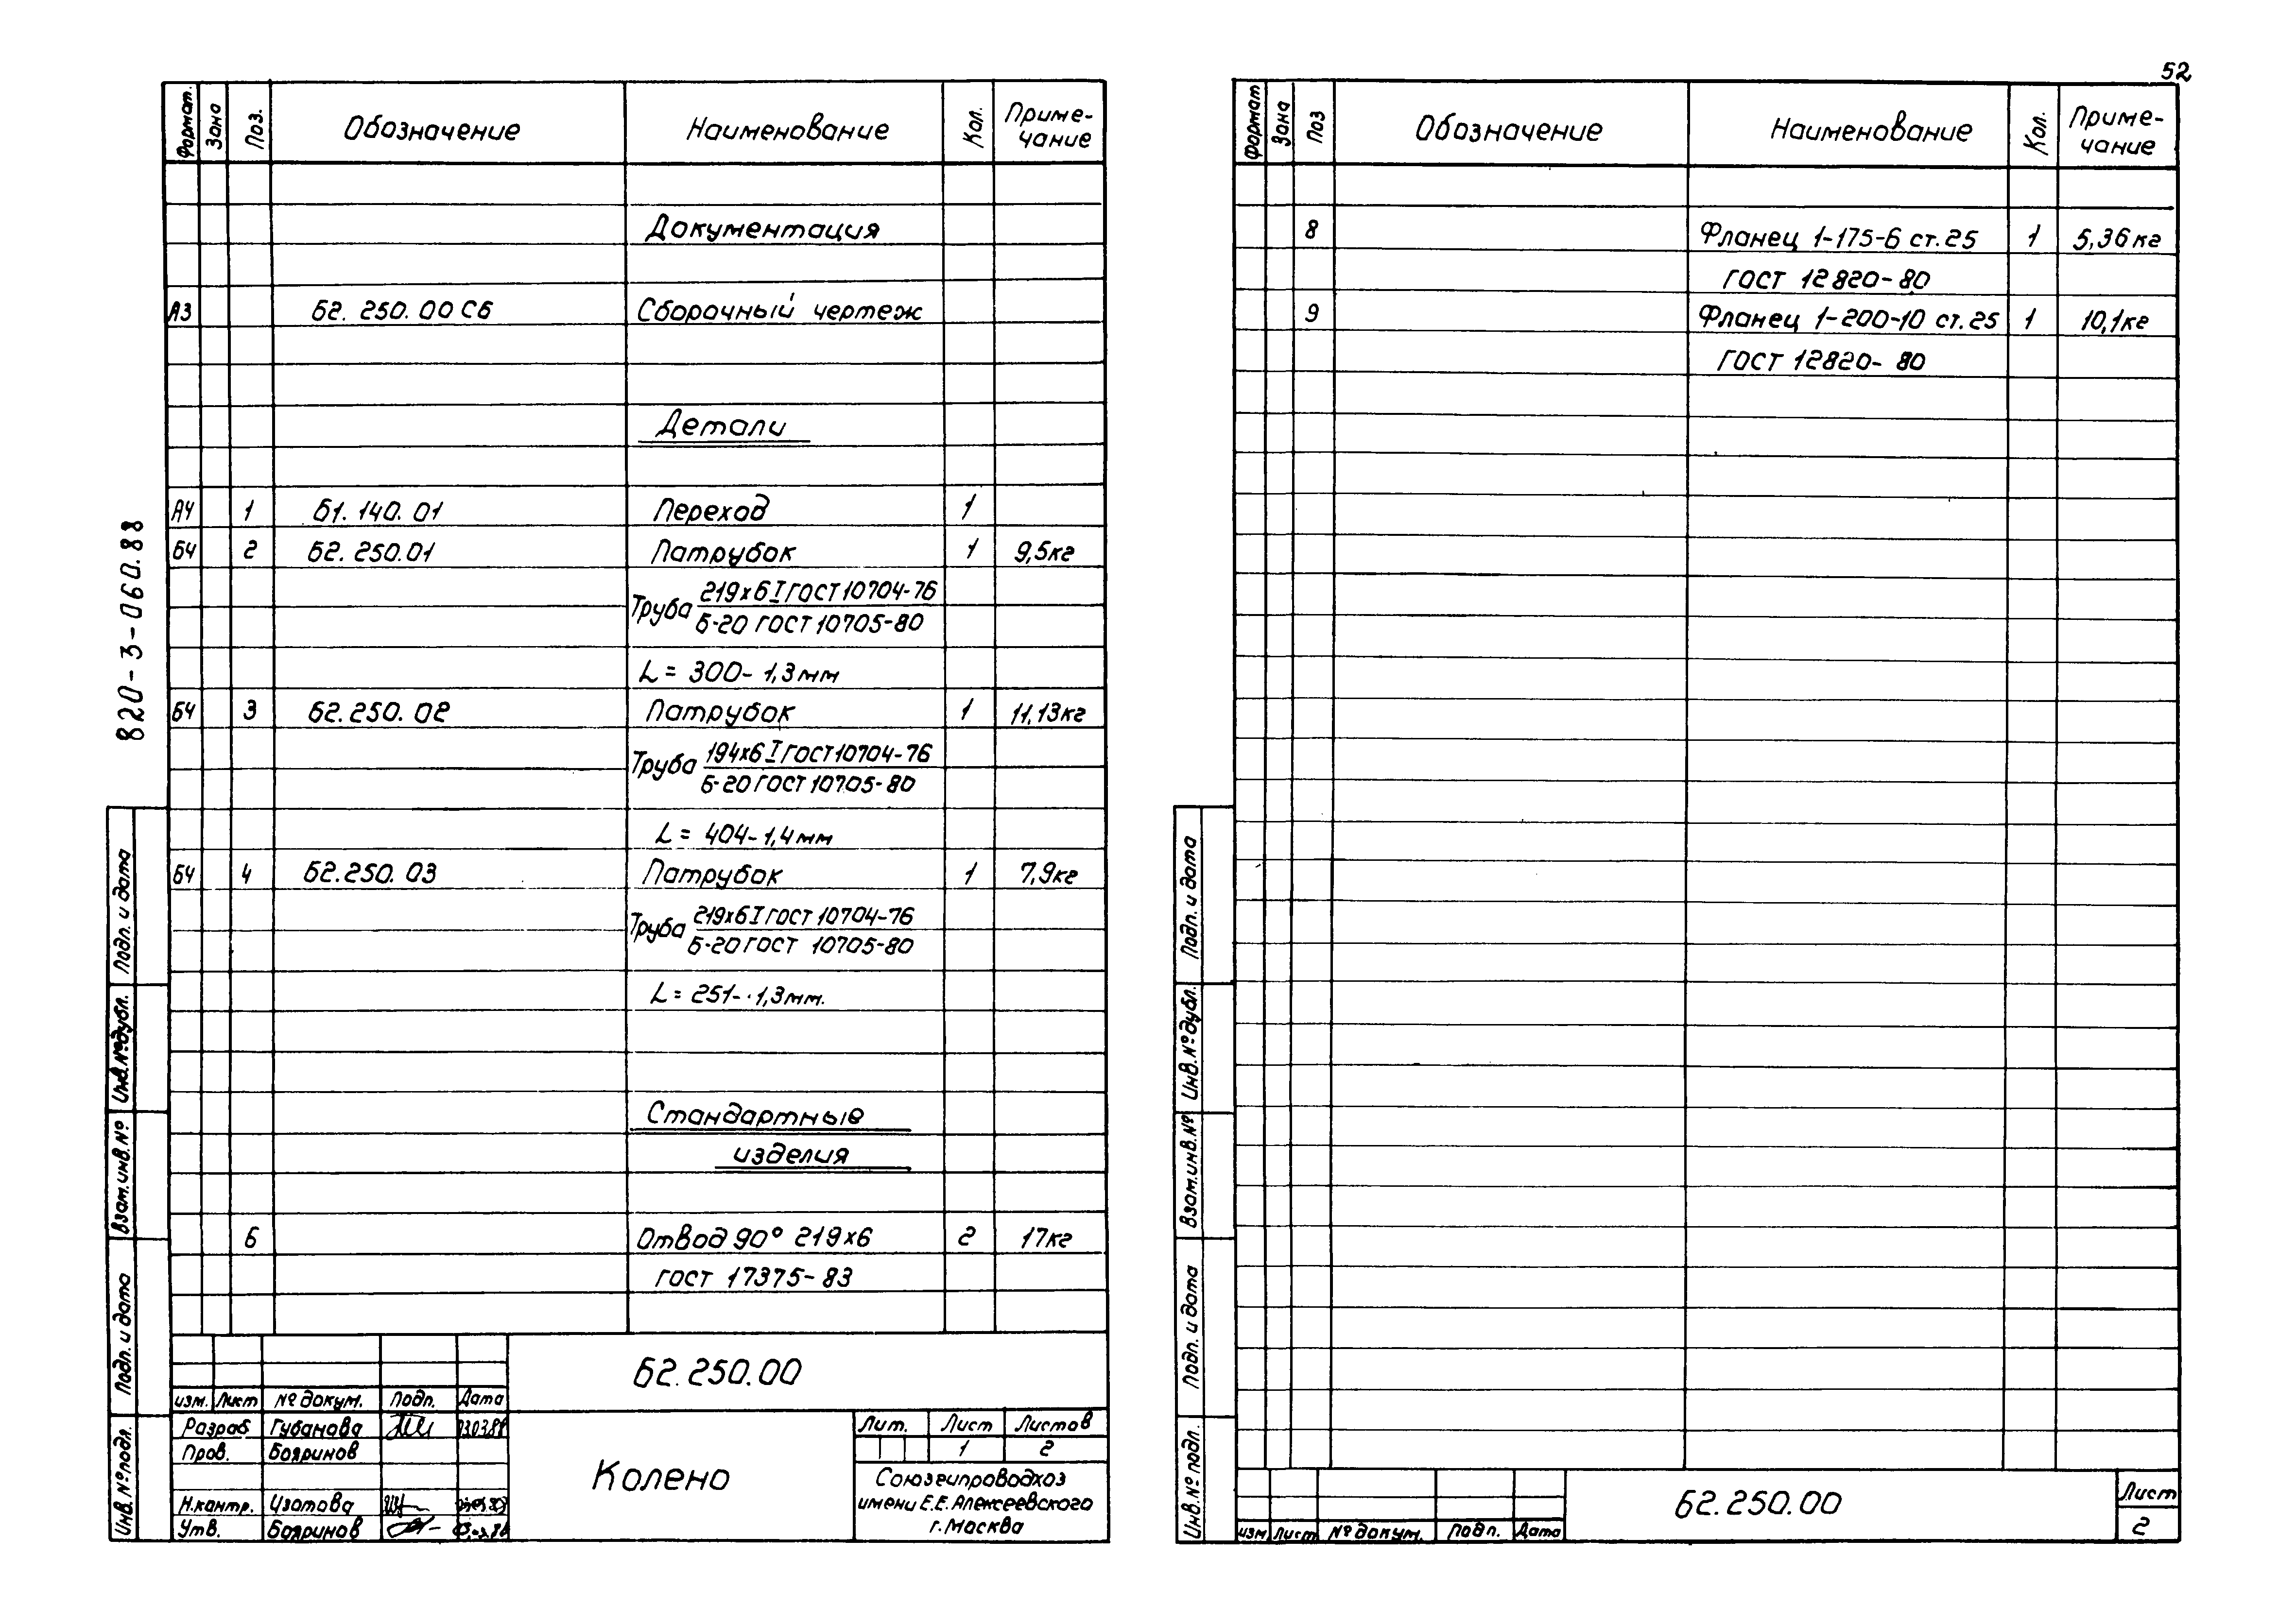 52
820-3-060.88
Формат. Зона Поз. Обозначение Наименование Кол. Приме-
чание
Документация
А3 Б2. 250. 00 СБ Сборочный чертеж
Детали
А4 1 Б1. 140. 01 Переход 1
БЧ 2 Б2. 250.01 Патрубок 1 9,5кг
Труба 219х6 I ГОСТ 10704-76
Б-20 ГОСТ 10705-80
L = 300- 1,3мм
БЧ 3 Б2. 250. 02 Патрубок 1 11,13кг
Труба 194х6 I ГОСТ 10704-76
Б-20 ГОСТ 10705-80
L = 404- 1,4 мм
БЧ 4 Б2.250. 03 Патрубок 1 7,9кг
Труба 219х6 I ГОСТ 10704-76
Б-20 ГОСТ 10705-80
L = 251- 1,3мм.
Стандартные
изделия
6 Отвод 90° 219х6 2 17кг
ГОСТ 17375-83
Подп. и дата
Инв.№дубл.
Взам.инв.№
Подп. и дата
Инв.№подл.
Б2.250.00
изм. Лист № докум. Подп. Дата
Разраб Губанова
Пров. Бояринов
Н.контр. Изотова
Утв. Бояринов
Колено
Лит. Лист Листов
1 2
Союзгипроводхоз
имени Е.Е. Алексеевского
г.Москва
Формат Зона Поз Обозначение Наименование Кол. Приме-
чание
8 Фланец 1-175-6 ст.25 1 5,36кг
ГОСТ 12820-80
9 Фланец 1-200-10 ст.25 1 10,1кг
ГОСТ 12820-80
Подп. и дата
Инв.№дубл.
Взам.инв.№
Подп. и дата
Инв.№ подл.
изм Лист № докум. Подп. Дата
Б2.250.00
Лист
2